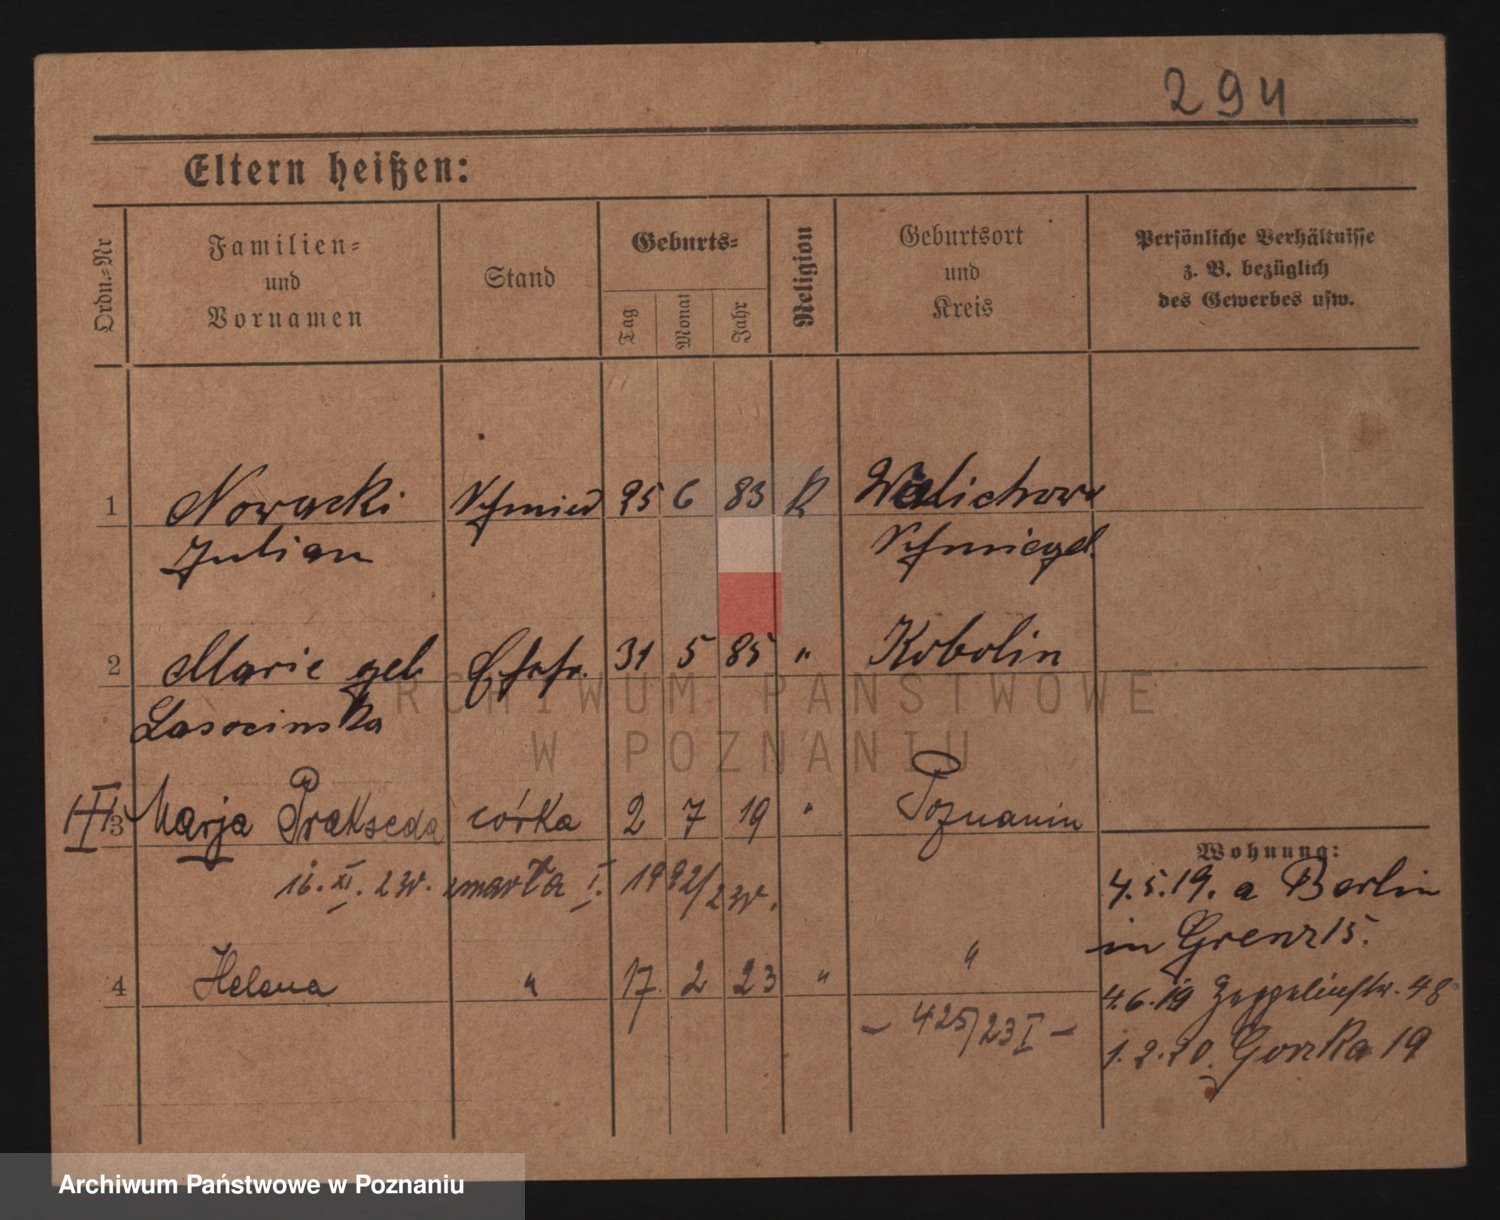 294
Eltern heißen:
Ordn.-Nr
Familien-
und
Vornamen
Stand
Geburts-
Tag
Monat
Jahr
Religion
Geburtsort
und
Kreis
Persönliche Verhältnisse
z. B. bezüglich
des Gewerbes usw.
1 Nowacki Schmied 25 6 83 k Wielichowo
Julian Schmiegel
2 Marie geb. Ehefr. 31 5 85 " Kobolin
Lasocinska
ARCHIWUM PAŃSTWOWE
W POZNANIU
3 Marja Prakseda córka 2 7 19 " Poznaniu
16. XI. 2 w. zmarła I. 1992/2 w.
Wohnung:
4.5.19. a Berlin
in Grenz 15.
4 Helena " 17. 2 23 " "
4.6.19 Zeppelinstr. 48
- 425/23 I -
1.2.20. Gorzka 19
Archiwum Państwowe w Poznaniu